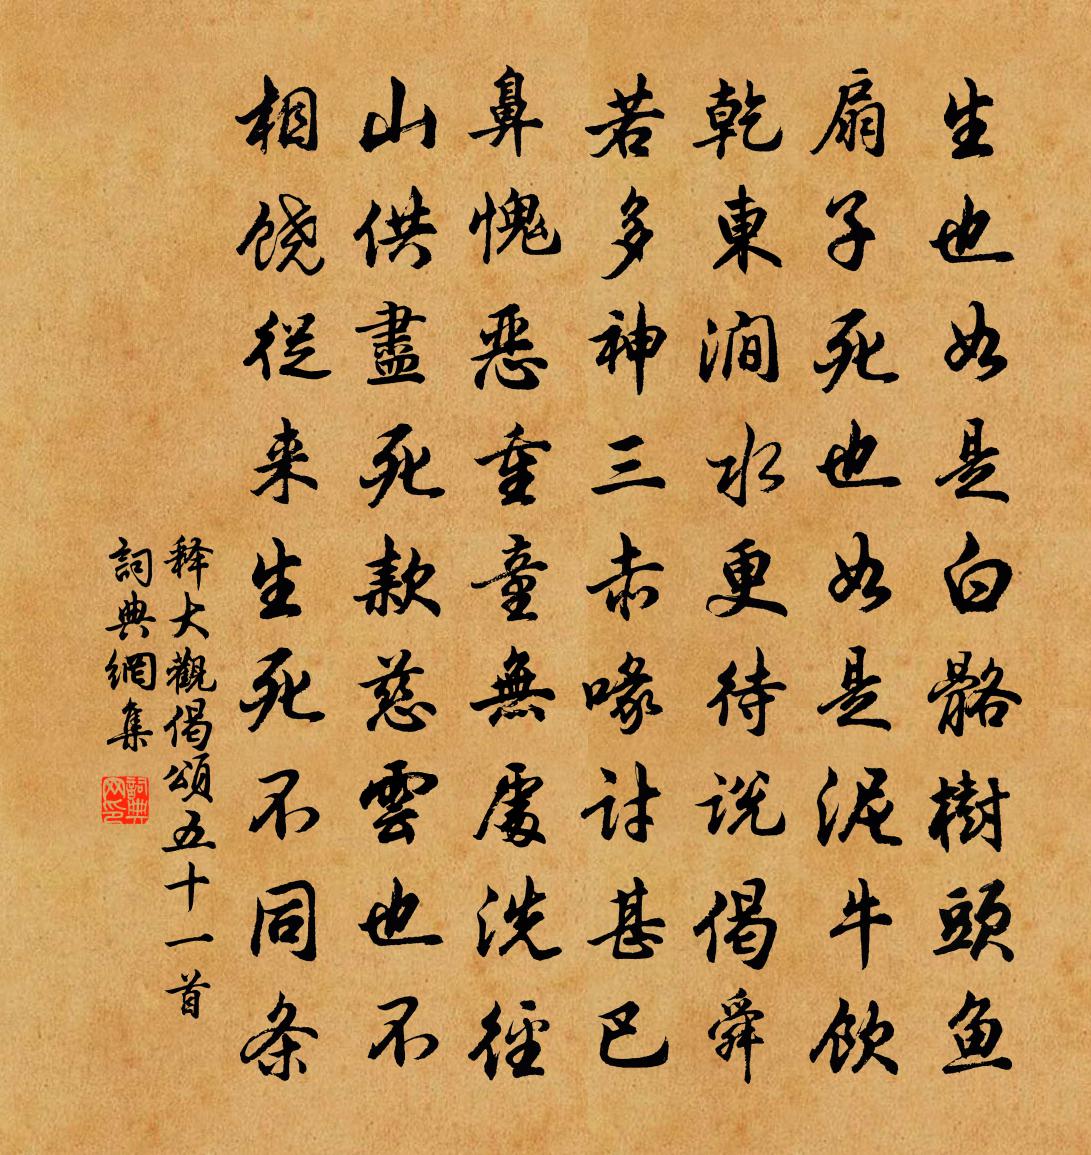 生也如是白骼樹頭鱼
扇子死也如是泥牛飲
乾東澗水更待説偈舜
若多神三赤喙討甚巴
鼻愧惡重童無處洗徑
山供盡死款慈雲也不
相饶從来生死不同条
释大觀偈頌五十一首
詞典網集
詞典网印